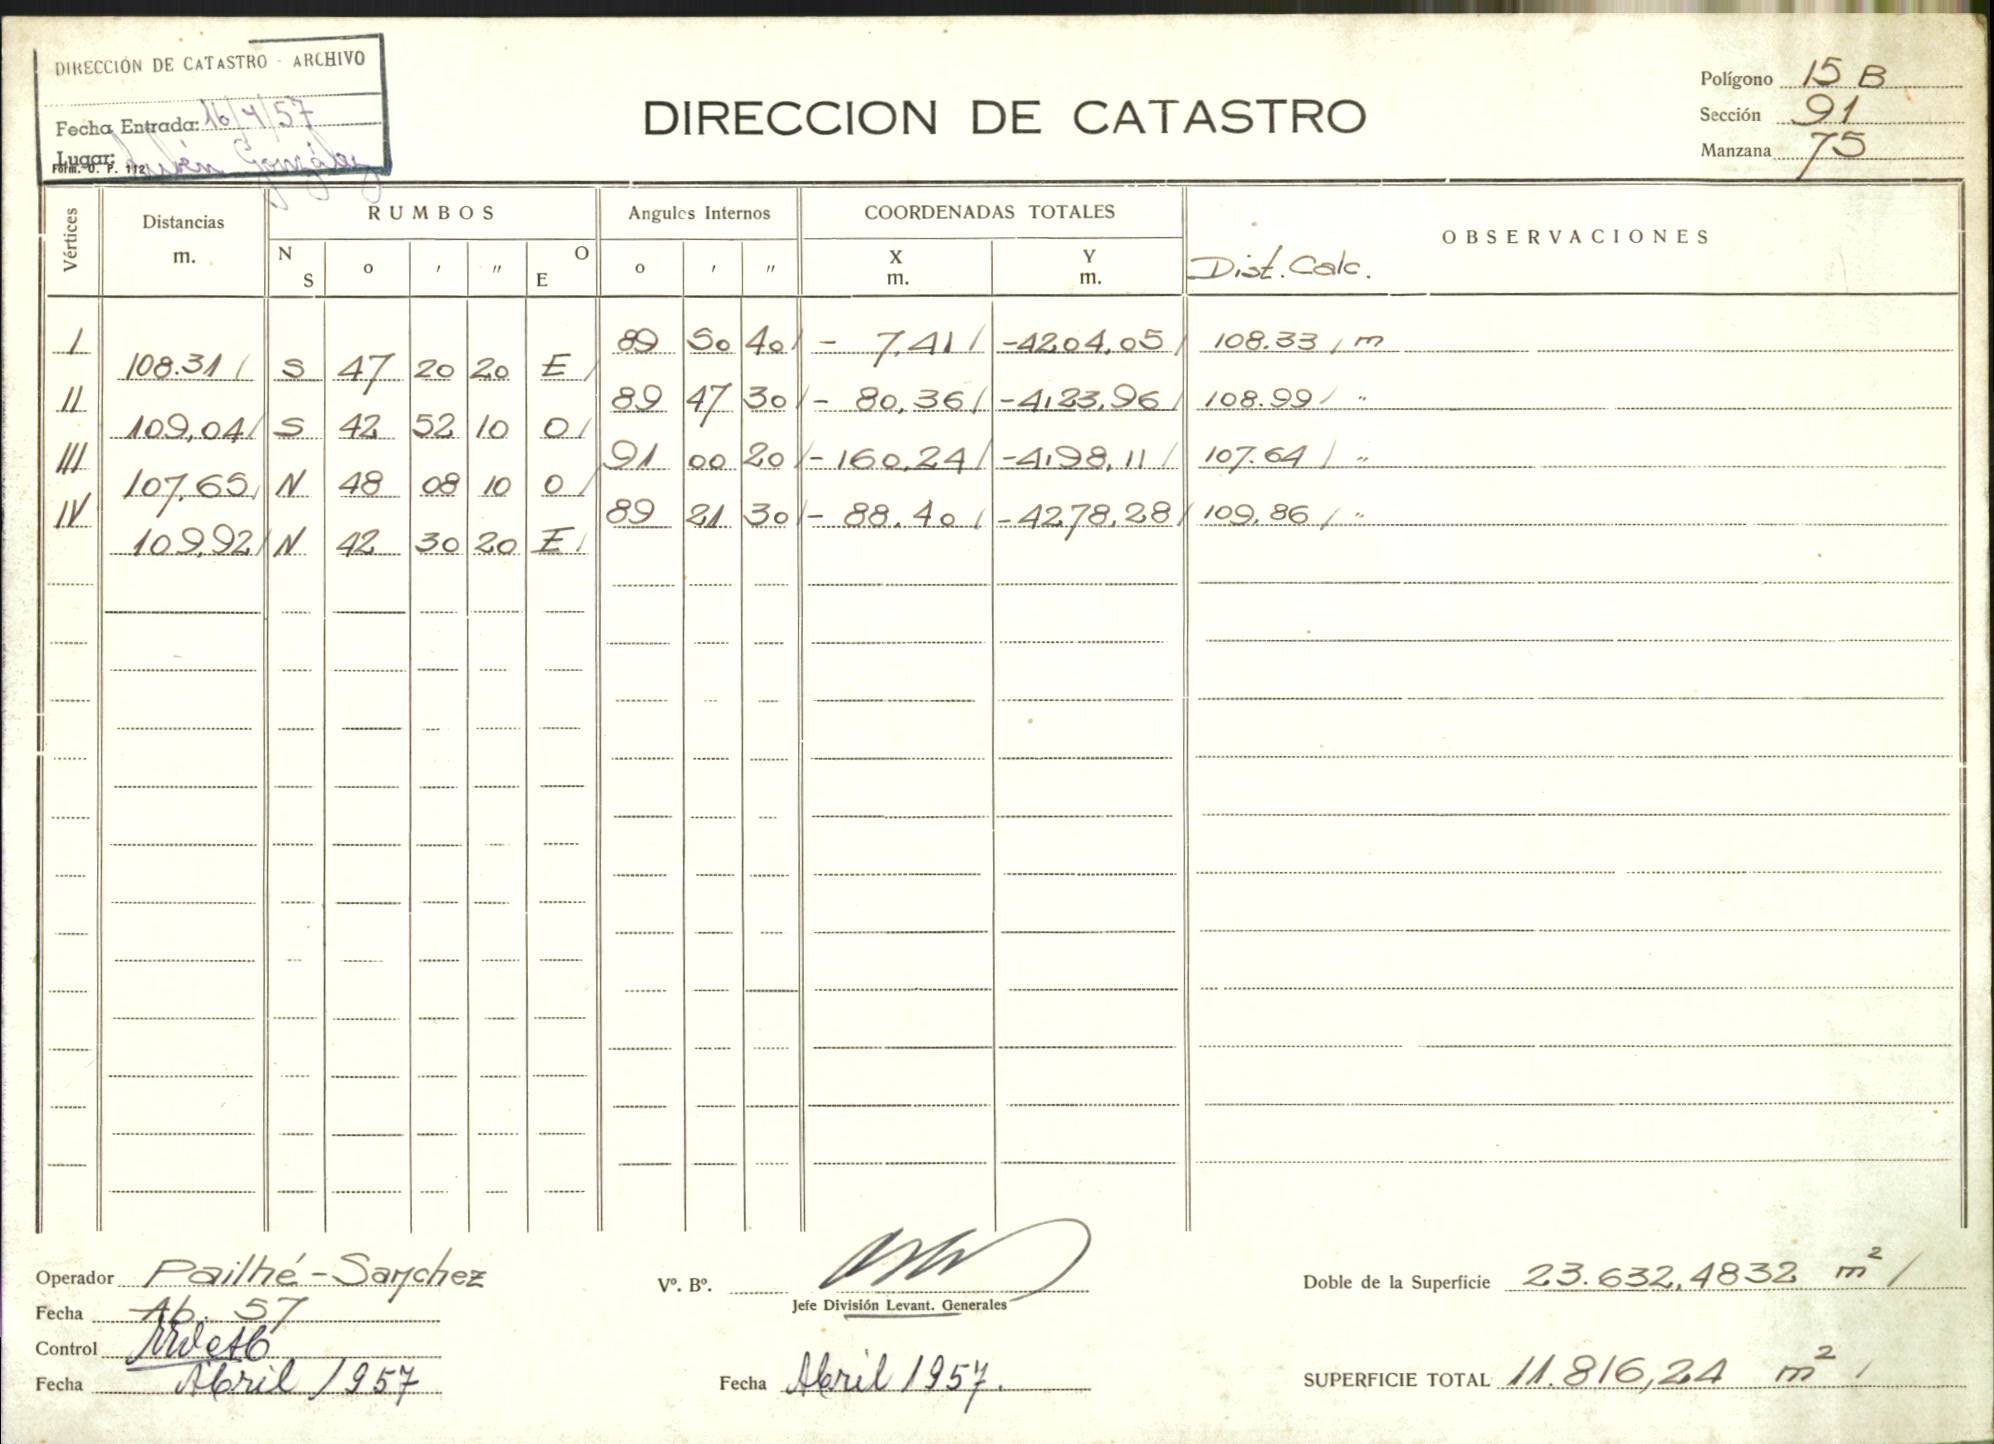 DIRECCIÓN DE CATASTRO - ARCHIVO
Fecha Entrada: 16/4/57
Lugar: Rubén González
Form. O. P. 112
DIRECCION DE CATASTRO
Polígono 15 B
Sección 91
Manzana 75
Vértices Distancias m. RUMBOS Angulos Internos COORDENADAS TOTALES OBSERVACIONES
N S o ' " O E o ' " X m. Y m. Dist. Calc.
I 89 50 40 - 7,41 -4204,05 108.33 m
108.31 S 47 20 20 E
II 89 47 30 - 80,36 -4123,96 108.99 "
109,04 S 42 52 10 O
III 91 00 20 -160,24 -4198,11 107.64 "
107,65 N 48 08 10 O
IV 89 21 30 - 88.40 -4278,28 109,86 "
109,92 N 42 30 20 E
Operador Pailhé-Sanchez
Fecha Ab. 57
Control
Fecha Abril/1957
Vº. Bº.
Jefe División Levant. Generales
Fecha Abril 1957.
Doble de la Superficie 23.632,4832 m²
SUPERFICIE TOTAL 11.816,24 m²